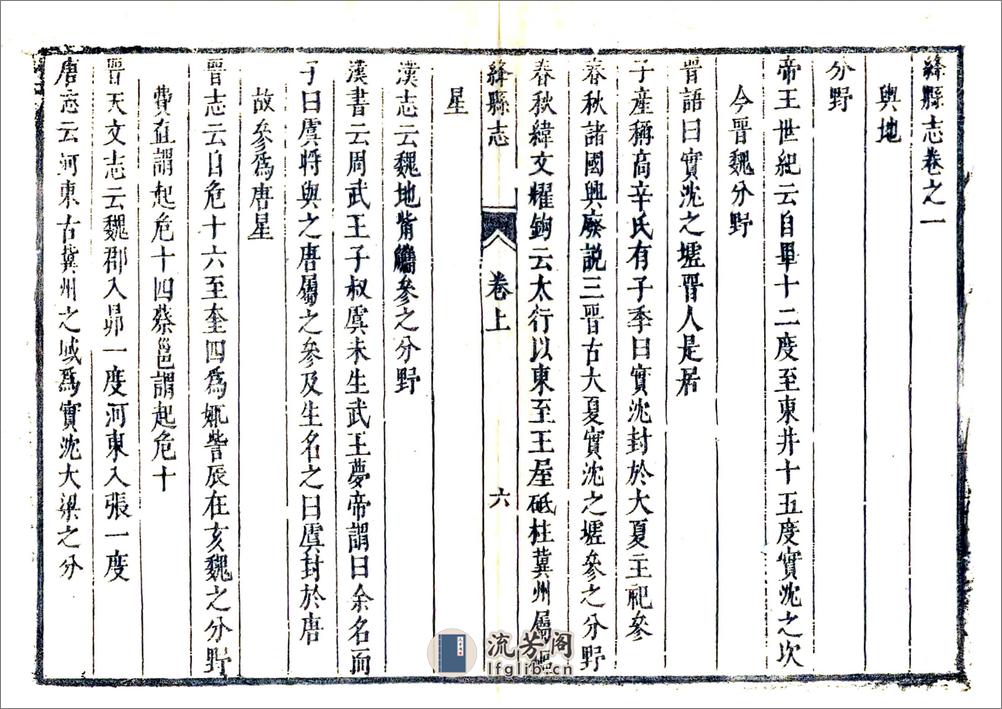 絳縣志卷之一
輿地
分野
帝王世紀云自畢十二度至東井十五度實沈之次
今晉魏分野
晉語曰實沈之墟晉人是居
子產稱高辛氏有子季曰實沈封於大夏主祀參
春秋諸國興廢說三晉古大夏實沈之墟參之分野
春秋緯文耀鉤云太行以東至王屋砥柱冀州屬
絳縣志
卷上
六
星
漢志云魏地觜觿參之分野
漢書云周武王子叔虞未生武王夢帝謂曰余名而
子曰虞將與之唐屬之參及生名之曰虞封於唐
故參爲唐星
晉志云自危十六至奎四爲娵訾辰在亥魏之分野
費直謂起危十四蔡邕謂起危十
晉天文志云魏郡入昴一度河東入張一度
唐志云河東古冀州之域爲實沈大梁之分
流芳阁
lfglib.cn